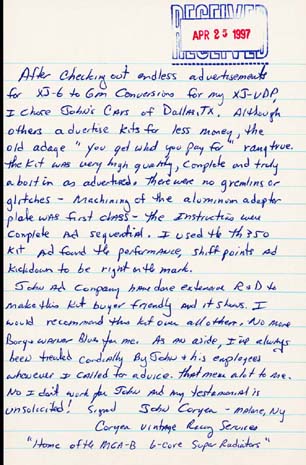 RECEIVED
APR 25 1997
RECEIVED
After Checking out endless advertisements
for XJ-6 to Gm Conversions for my XJ-VDP,
I chose John's Cars of Dallas, TX. Although
others advertise Kits for less money, the
old adage "you get what you pay for" rang true.
the Kit was very high quality, Complete and truly
a bolt in as advertised. There were no gremlins or
glitches - Machining of the aluminum adapter
plate was first class - the Instructions were
Complete Ad sequential. I used the th350
Kit Ad found the performance, shift points Ad
Kickdown to be right on the mark.
John Ad Company have done extensive R+D to
make this Kit buyer friendly and it shows. I
would recommend this kit over all others. No more
Borg Warner Blues for me. As an aside, I've always
been treated cordially By John + his employees
whenever I called for advice. that means a lot to me.
No I don't work for John Ad my testamonial is
unsolicited! Signed John Coryea - malone, Ny
Coryea vintage Racing Services
"Home of the MGA-B 6-core Super Radiators"